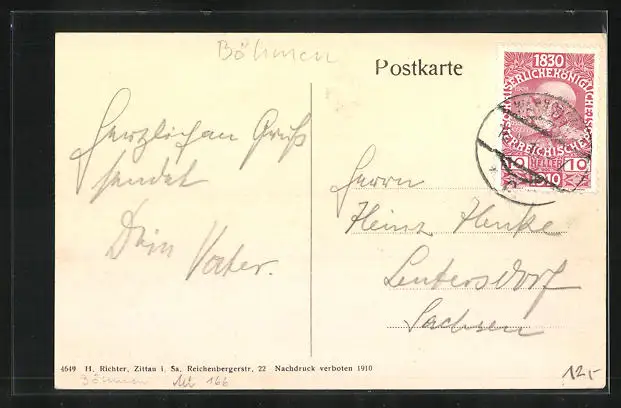 Böhmen
Postkarte
1830
KAISERLICHE KÖNIGLICHE
ÖSTERREICHISCHE
10 HELLER 10
1910
Herzlichen Gruß
sendet
Dein Vater.
Herrn
Heinz Henke
Leutersdorf
Sachsen
4649 H. Richter, Zittau i. Sa. Reichenbergerstr. 22 Nachdruck verboten 1910
Böhmen Mi 166
12,-